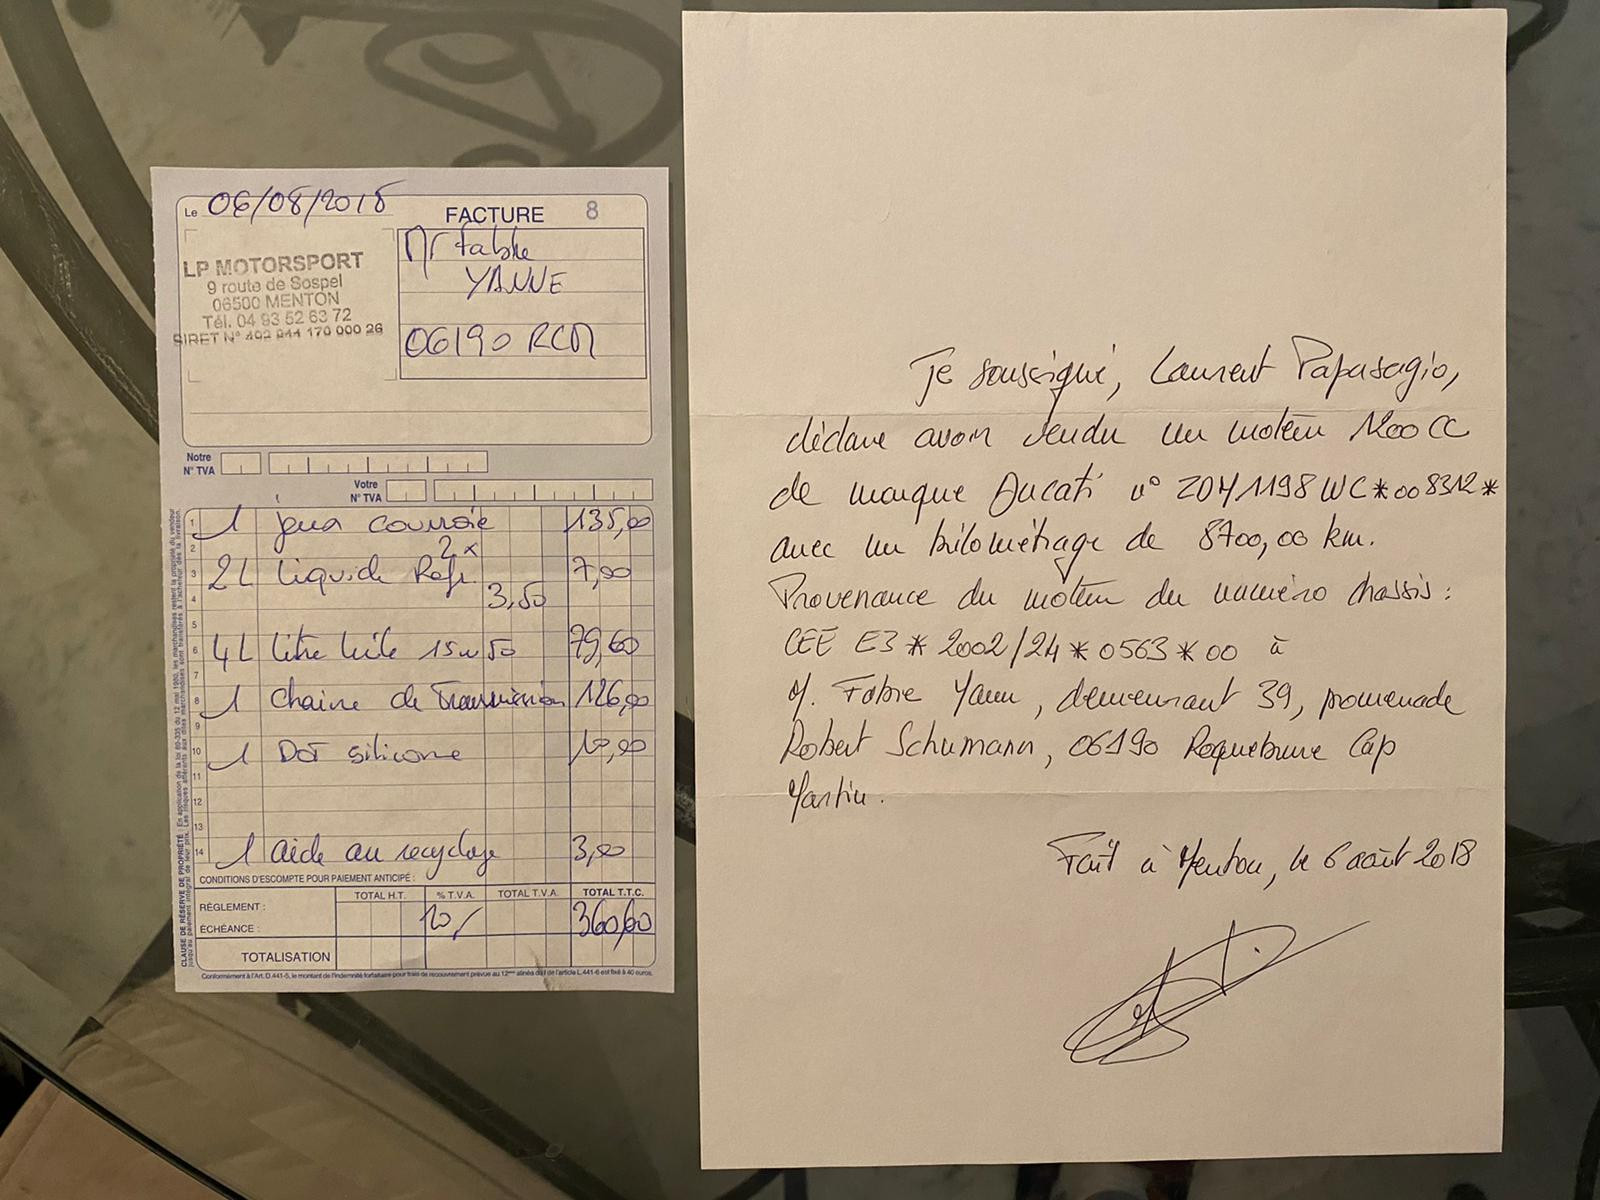 Le 06/08/2018
FACTURE 8
LP MOTORSPORT
9 route de Sospel
06500 MENTON
Tél. 04 93 52 63 72
SIRET N° 492 944 170 000 26
Mr Fabre
YANNE
06190 RCM
Notre
N° TVA
Votre
N° TVA
1 1 jeux courroie 135,00
2 2x
3 2L liquide Refr. 7,00
4 3,50
5
6 4L litre huile 15w50 79,60
7
8 1 chaine de Transmission 126,00
9
10 1 DOT silicone 10,00
11
12
13
14 1 aide au recyclage 3,00
CONDITIONS D'ESCOMPTE POUR PAIEMENT ANTICIPÉ :
TOTAL H.T. % T.V.A. TOTAL T.V.A. TOTAL T.T.C.
RÈGLEMENT :
ÉCHÉANCE : 20/ 360,60
TOTALISATION
Conformément à l'Art. D.441-5, le montant de l'indemnité forfaitaire pour frais de recouvrement prévue au 12ème alinéa du I de l'article L.441-6 est fixé à 40 euros.
CLAUSE DE RÉSERVE DE PROPRIÉTÉ : En application de la loi 80-335 du 12 mai 1980, les marchandises restent la propriété du vendeur
jusqu'au paiement intégral de leur prix. Les risques afférents aux dites marchandises sont transférés à l'acheteur dès la livraison.
Je soussigné, Laurent Papasagio,
déclare avoir vendu un moteur 1200 CC
de marque Ducati n° ZDM1198WC*008312*
avec un kilométrage de 8700,00 km.
Provenance du moteur du numéro chassis :
CEE E3*2002/24*0563*00 à
M. Fabre Yann, demeurant 39, promenade
Robert Schumann, 06190 Roquebrune Cap
Martin.
Fait à Menton, le 6 août 2018